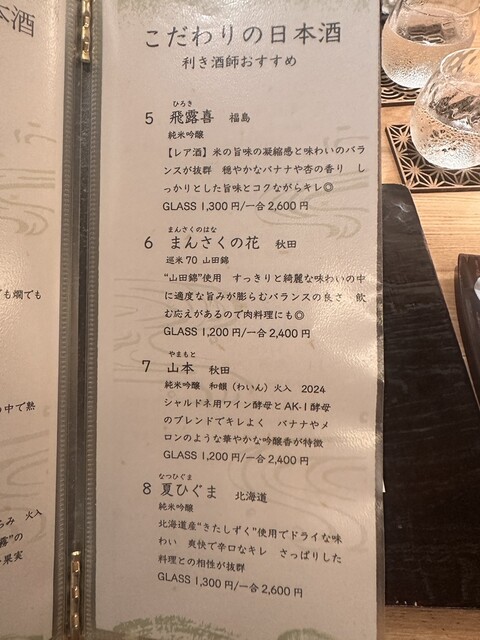 本酒
も燗でも
の中で熟
らみ 火入
霧”の
果実
こだわりの日本酒
利き酒師おすすめ
ひろき
5 飛露喜 福島
純米吟醸
【レア酒】米の旨味の凝縮感と味わいのバラ
ンスが抜群 穏やかなバナナや杏の香り し
っかりとした旨味とコクながらキレ◎
GLASS 1,300 円/一合 2,600 円
まんさくのはな
6 まんさくの花 秋田
巡米 70 山田錦
“山田錦”使用 すっきりと綺麗な味わいの中
に適度な旨みが膨らむバランスの良さ 飲
む応えがあるので肉料理にも◎
GLASS 1,200 円/一合 2,400 円
やまもと
7 山本 秋田
純米吟醸 和韻（わいん）火入 2024
シャルドネ用ワイン酵母と AK-1 酵母
のブレンドでキレよく バナナやメ
ロンのような華やかな吟醸香が特徴
GLASS 1,200 円/一合 2,400 円
なつひぐま
8 夏ひぐま 北海道
純米吟醸
北海道産“きたしずく”使用でドライな味
わい 爽快で辛口なキレ さっぱりした
料理との相性が抜群
GLASS 1,300 円/一合 2,600 円